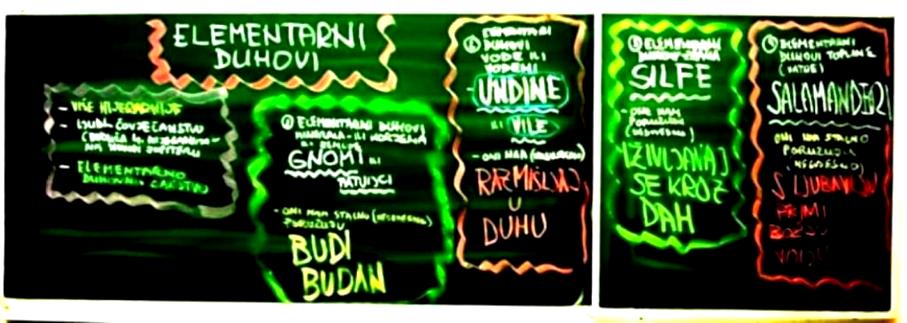 ELEMENTARNI
DUHOVI
- VIŠE HIJERARHIJE
- LJUDI. ČOVJEČANSTVO
- ELEMENTARNO
① ELEMENTARNI DUHOVI
MINERALA - ILI KORIJENA
ILI ZEMLJE
GNOMI ILI
PATULJCI
- ONI NAM STALNO
PORUČUJU
BUDI
BUDAN
② ELEMENTARNI
DUHOVI
VODE ILI
VODENI
- UNDINE
ILI VILE
- ONI NAM
RAZMIŠLJAJ
U
DUHU
③ ELEMENTARNI
DUHOVI
SILFE
- ONI NAM
PORUČUJU
(NESVJESNO)
IŽIVLJAVAJ
SE KROZ
DAH
④ ELEMENTARNI
DUHOVI TOPLINE
(VATRE)
SALAMANDERI
ONI NAM STALNO
PORUČUJU
(NESVJESNO)
S LJUBAVLJU
PRIMI
BOŽJU
VOLJU